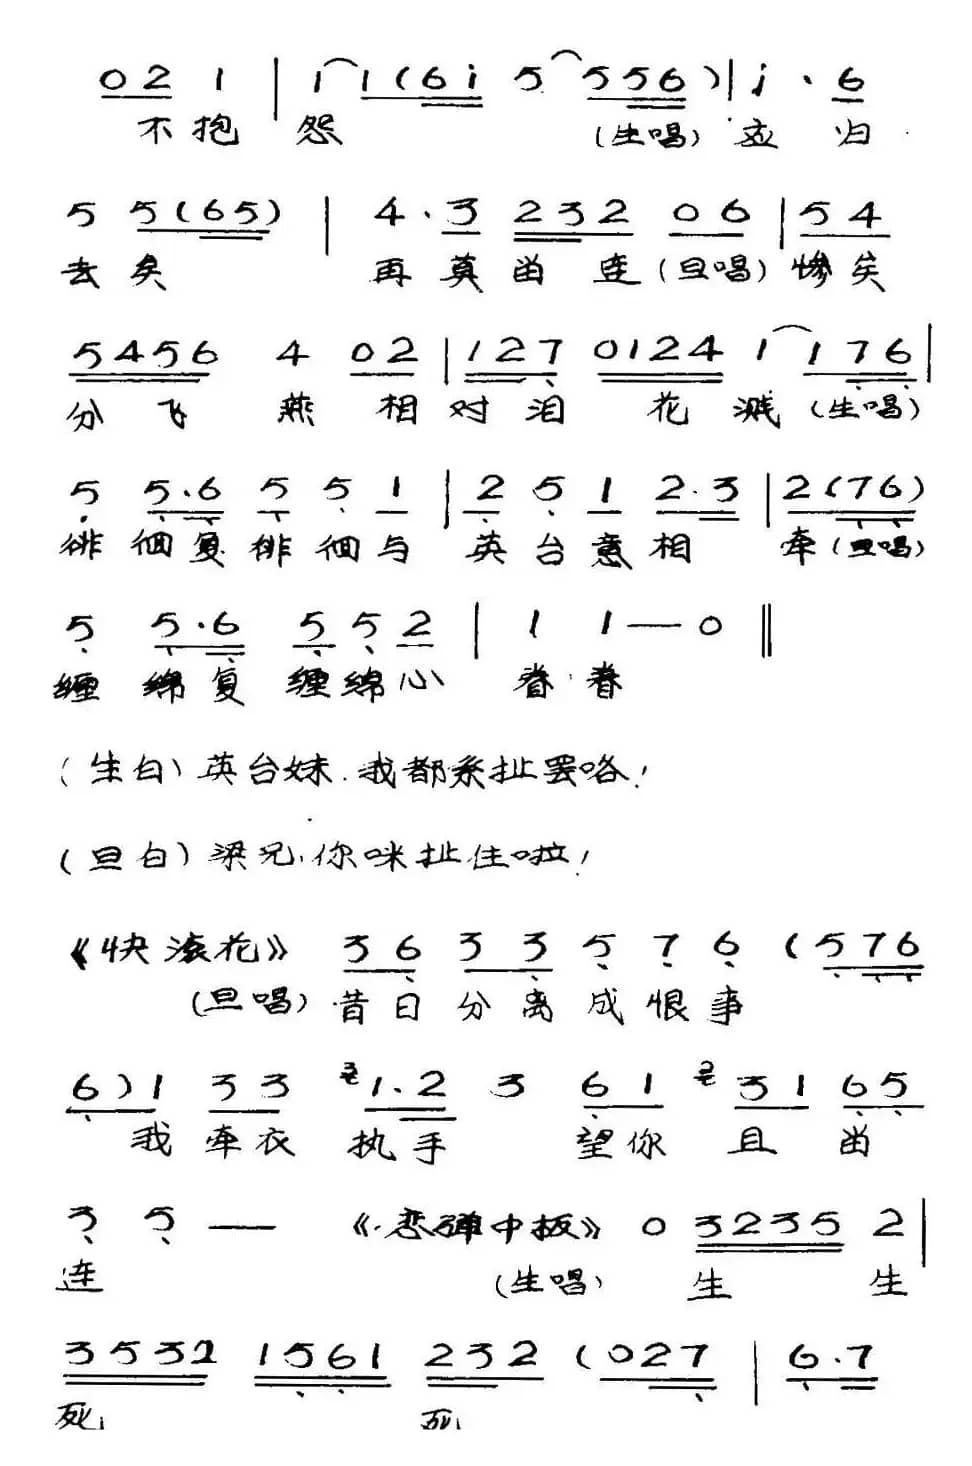 0 2 1 | 1 1 ( 6 i 5 5 5 6 ) | i · 6
不抱怨 (生唱) 应归
5 5 ( 6 5 ) | 4 · 3 2 3 2 0 6 | 5 4
去矣 再莫留连 (旦唱) 惨矣
5 4 5 6 4 0 2 | 1 2 7 0 1 2 4 1 1 7 6 |
分飞燕相对泪花溅 (生唱)
5 5 · 6 5 5 1 | 2 5 1 2 · 3 | 2 ( 7 6 )
徘徊复徘徊与英台意相牵 (旦唱)
5 5 · 6 5 5 2 | 1 1 — 0 ‖
缠绵复缠绵心眷眷
(生白) 英台妹.我都系扯罢咯!
(旦白) 梁兄,你咪扯住啦!
《快滚花》 3 6 3 3 5 7 6 ( 5 7 6
(旦唱) 昔日分离成恨事
6 ) 1 3 3 3 1 · 2 3 6 1 2 3 1 6 5
我牵衣执手望你且留
3 5 — 《恋弹中板》 0 3 2 3 5 2 |
连 (生唱) 生生
3 5 3 2 1 5 6 1 2 3 2 ( 0 2 7 | 6 · 7
死死